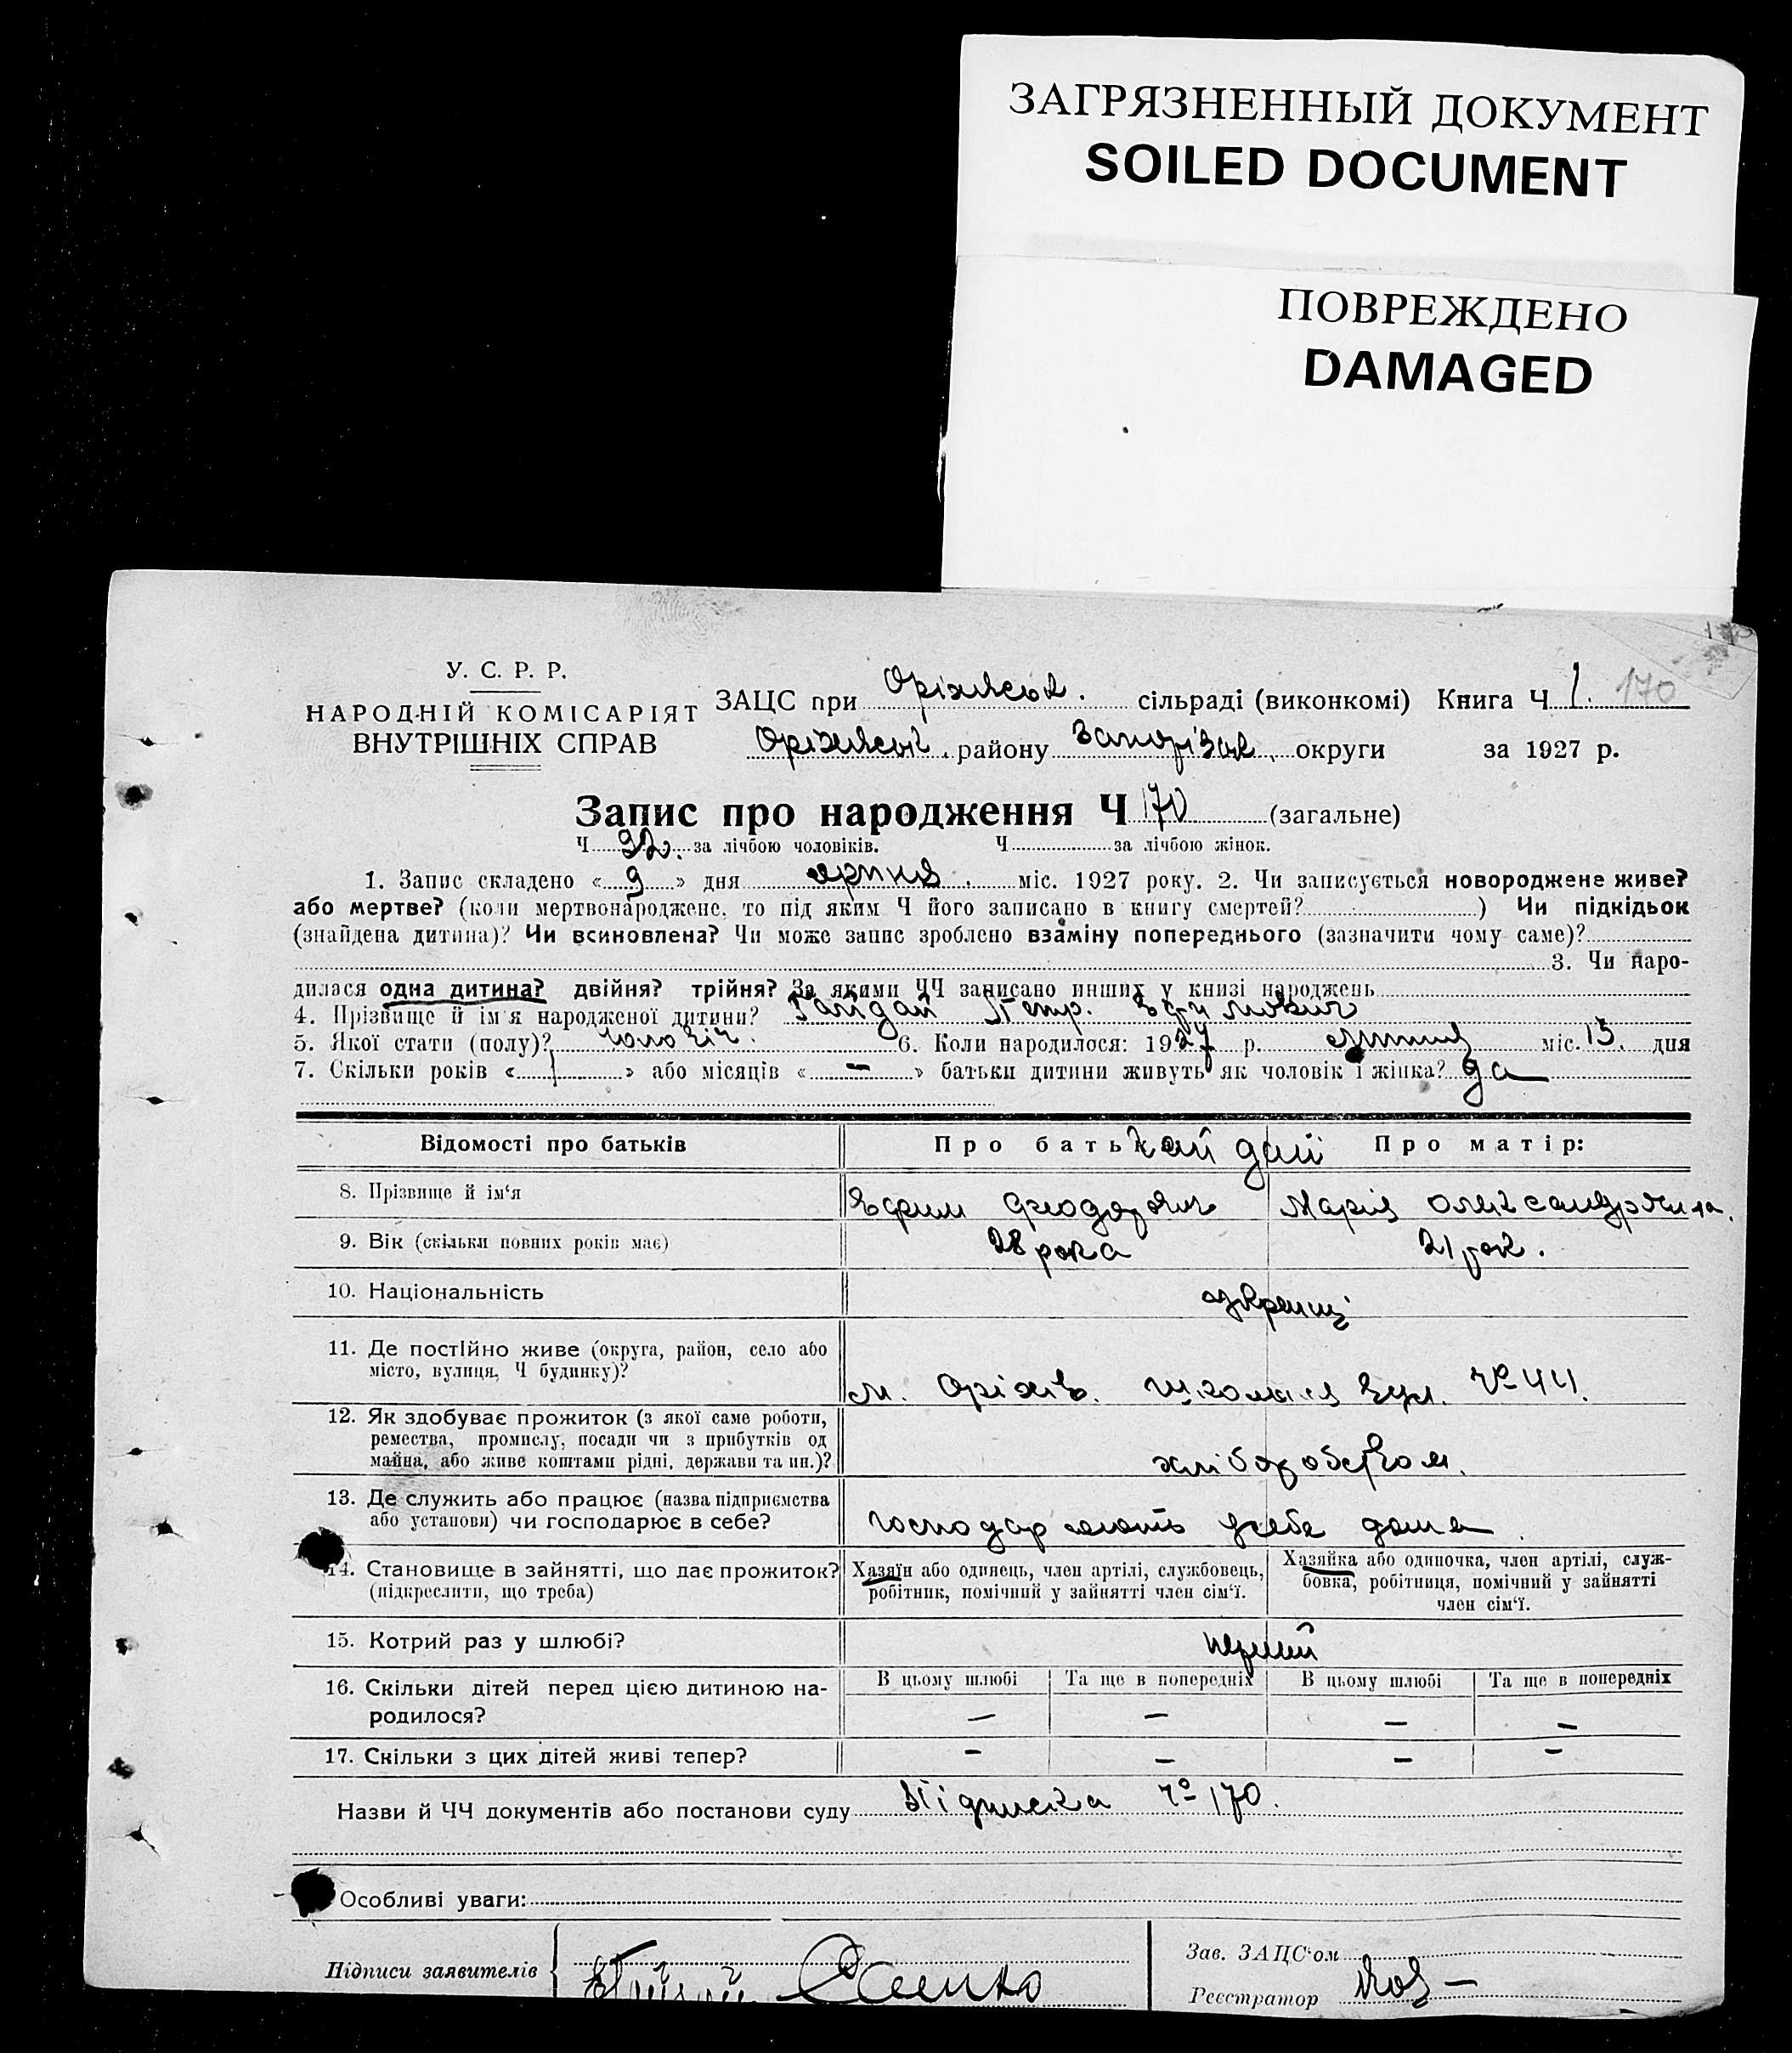 ЗАГРЯЗНЕННЫЙ ДОКУМЕНТ
SOILED DOCUMENT
ПОВРЕЖДЕНО
DAMAGED
У. С. Р. Р.
НАРОДНІЙ КОМІСАРІЯТ
ВНУТРІШНІХ СПРАВ
ЗАЦС при Оріхівськ. сільраді (виконкомі) Книга Ч 1. 170
Оріхівськ. району Запоріжк. округи за 1927 р.
Запис про народження Ч 170 (загальне)
Ч 92. за лічбою чоловіків. Ч за лічбою жінок.
1. Запис складено « 9 » дня міс. 1927 року. 2. Чи записується новороджене живе?
або мертве? (коли мертвонароджене, то під яким Ч його записано в книгу смертей? ) Чи підкідьок
(знайдена дитина)? Чи всиновлена? Чи може запис зроблено взаміну попереднього (зазначити чому саме)?
3. Чи наро-
дилася одна дитина? двійня? трійня? За якими ЧЧ записано инших у книзі народжень
4. Прізвище й ім'я народженої дитини? Гайдай Петр. Єфимович
5. Якої стати (полу)? чоловіч. 6. Коли народилося: 1927 р. міс. 13. дня
7. Скільки років « 1 » або місяців « — » батьки дитини живуть як чоловік і жінка? да
Відомості про батьків Про батька Гайдай Про матір:
8. Прізвище й ім'я Єфим Феодорович Марія Олександрівна.
9. Вік (скільки повних років має) 28 рока 21 рок.
10. Національність українці
11. Де постійно живе (округа, район, село або
місто, вулиця, Ч будинку)? м. Оріхів. Шкільна вул. № 44.
12. Як здобуває прожиток (з якої саме роботи,
ремества, промислу, посади чи з прибутків од
майна, або живе коштами рідні, держави та ин.)? хліборобством.
13. Де служить або працює (назва підприємства
або установи) чи господарює в себе? господарюють у себе дома.
14. Становище в зайнятті, що дає прожиток? Хазяїн або одинець, член артілі, службовець, Хазяйка або одиночка, член артілі, служ-
(підкреслити, що треба) робітник, помічний у зайнятті член сім'ї. бовка, робітниця, помічний у зайнятті
член сім'ї.
15. Котрий раз у шлюбі? перший
16. Скільки дітей перед цією дитиною на- В цьому шлюбі Та ще в попередніх В цьому шлюбі Та ще в попередніх
родилося? — — — —
17. Скільки з цих дітей живі тепер? — — — —
Назви й ЧЧ документів або постанови суду Підписка № 170.
Особливі уваги:
Підписи заявителів
Зав. ЗАЦС'ом
Реєстратор